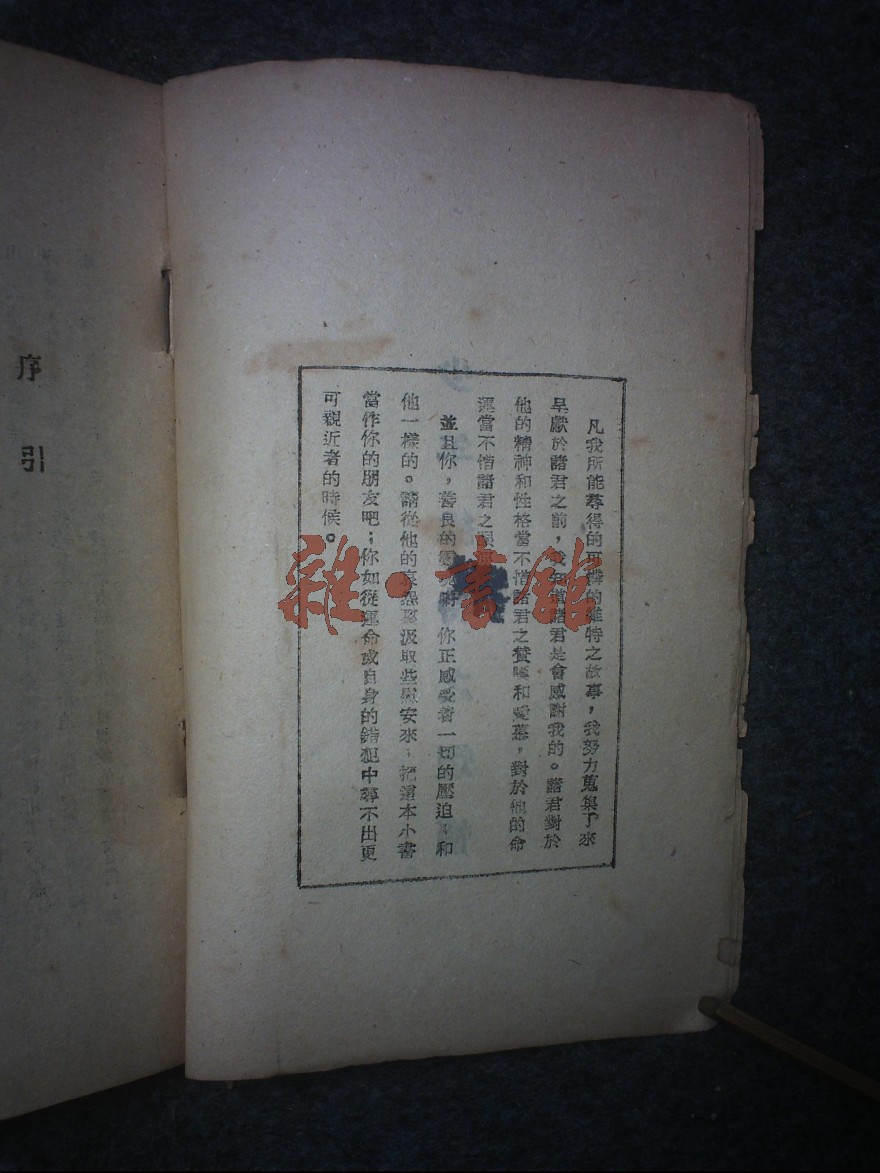 凡我所能尋得的可憐的維特之故事，我努力蒐集了來
呈獻於諸君之前，我知道諸君是會感謝我的。諸君對於
他的精神和性格當不惜諸君之贊嘆和愛慕，對於他的命
運當不惜諸君之眼
並且你，善良的 你正感受着一切的壓迫，和
他一樣的。請從他的哀怨裏汲取些慰安來，把這本小書
當作你的朋友吧；你如從運命或自身的錯犯中尋不出更
可親近者的時候。
序引
雜·書館